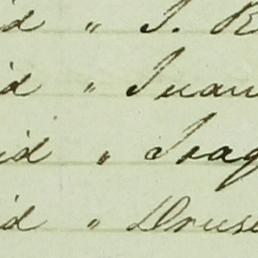 id " J. R
id " Juan
id " Joaq
id " Druse